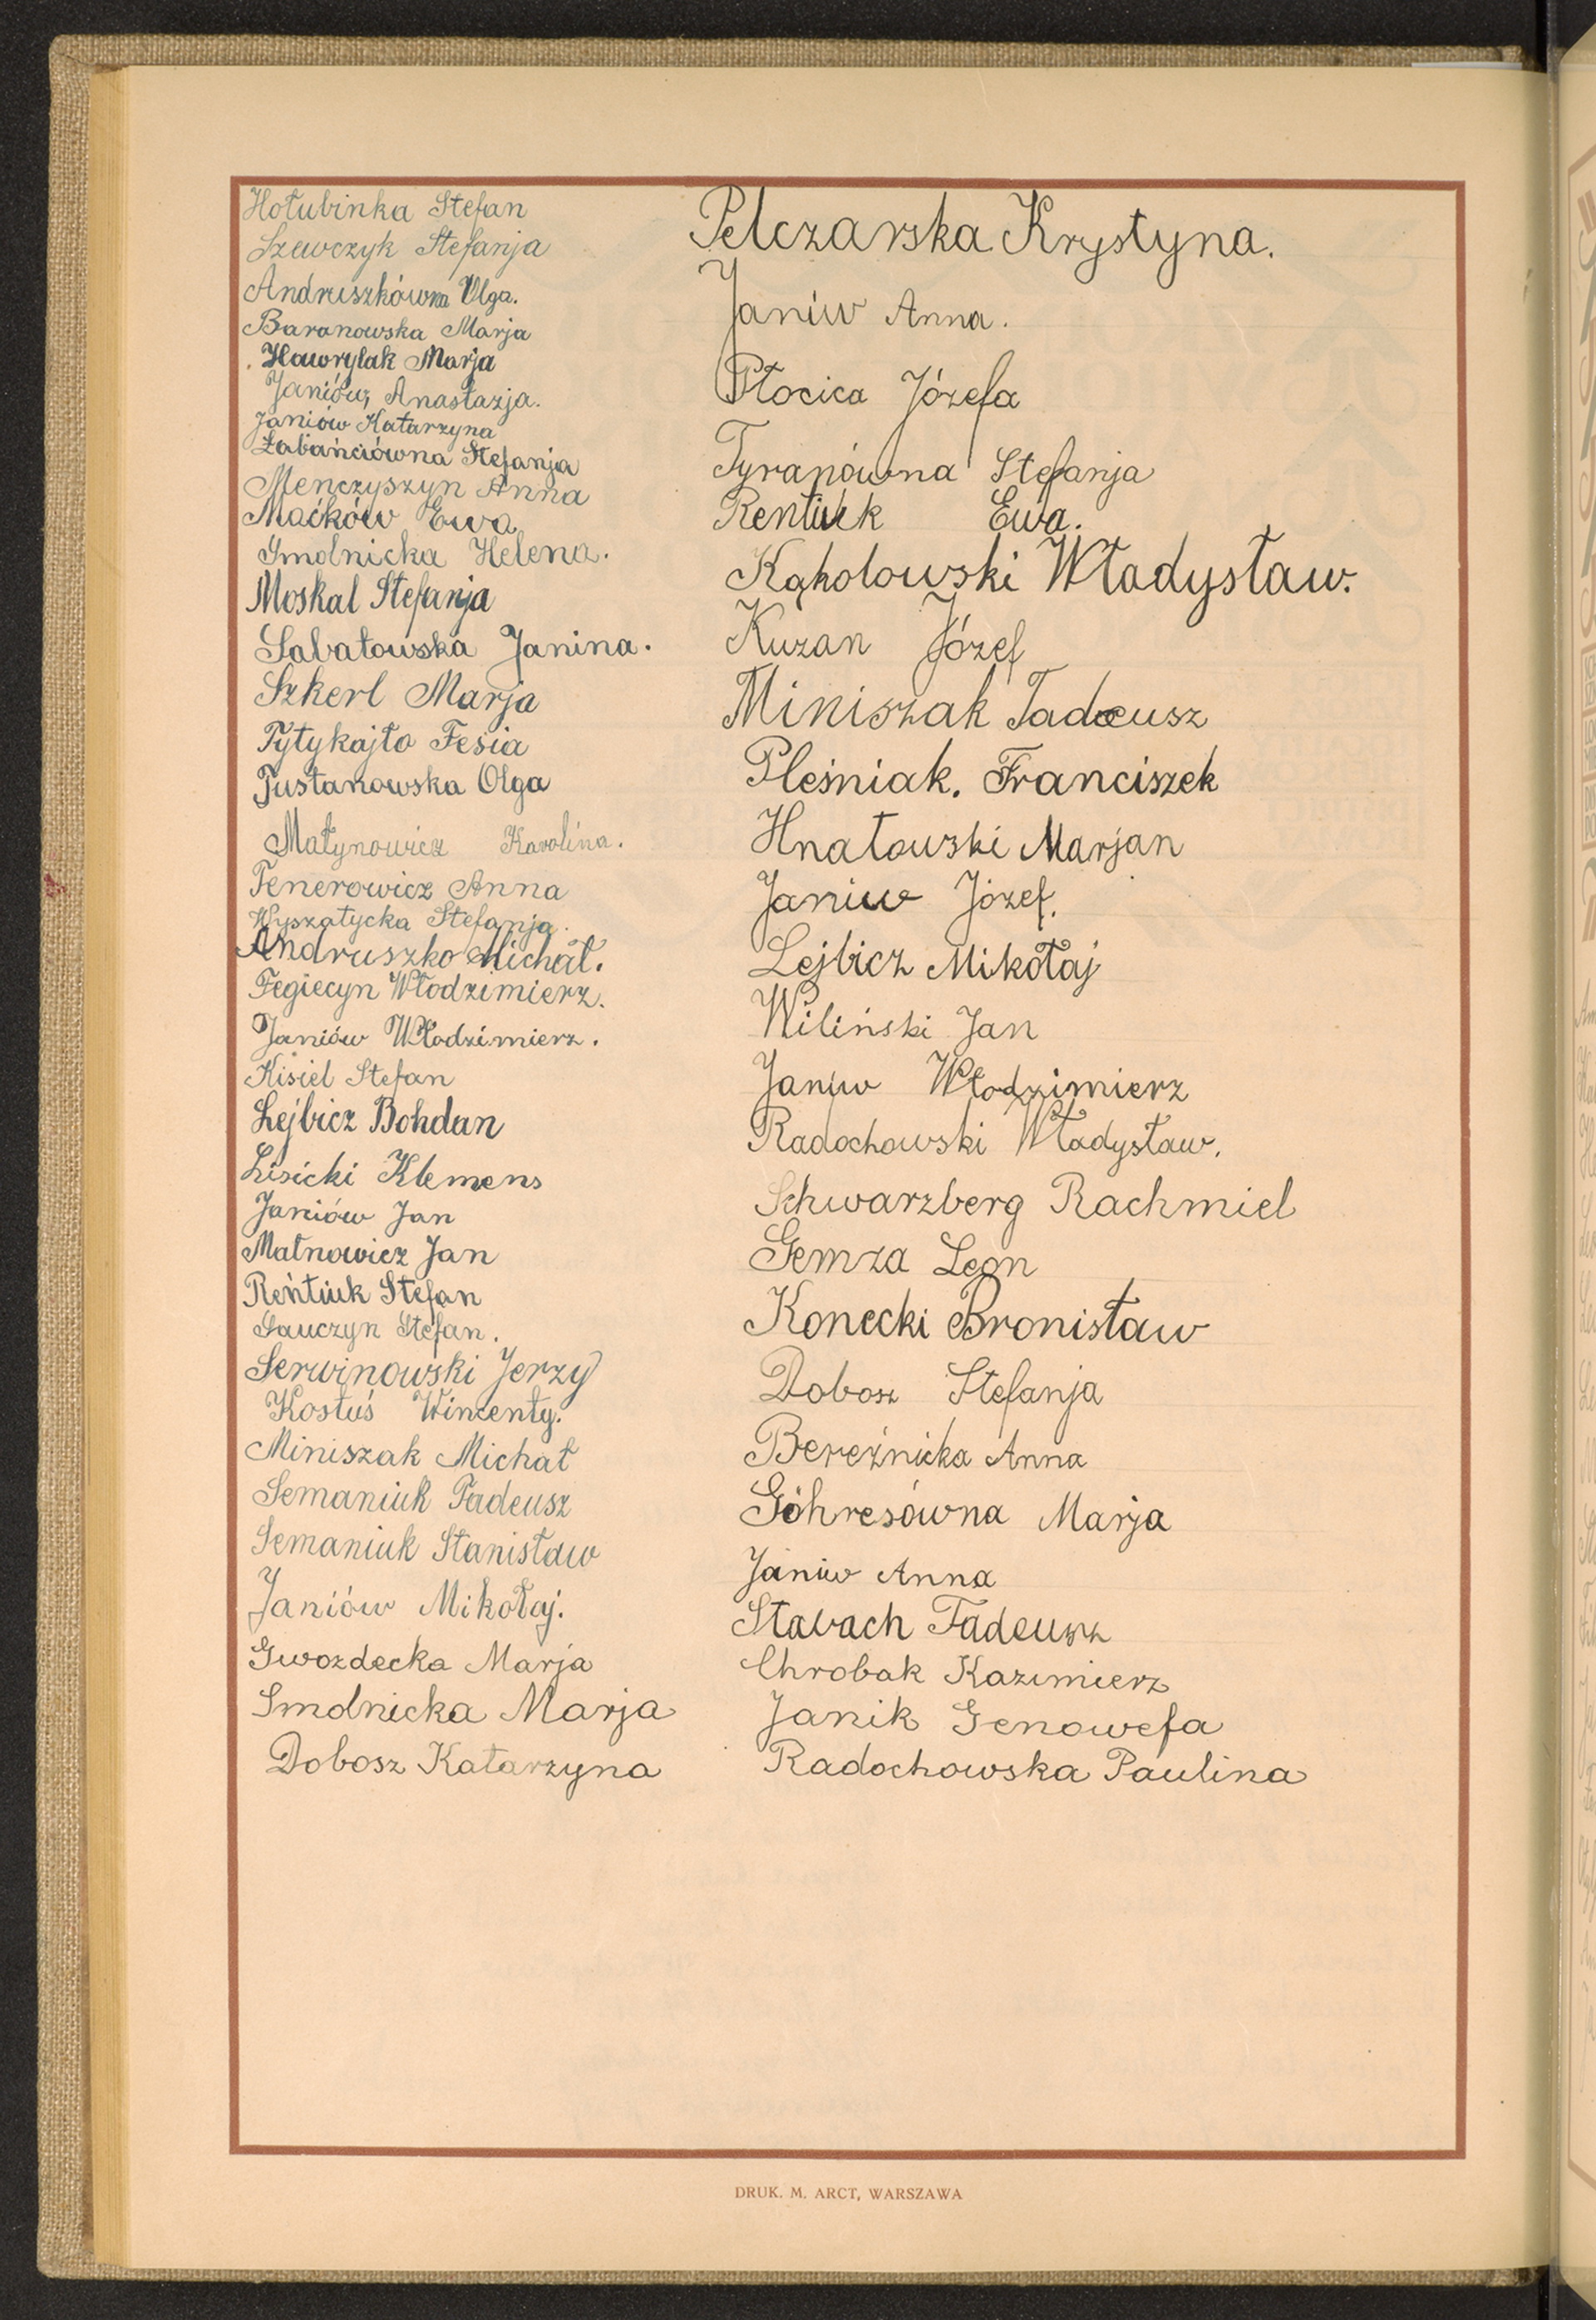 Hołubinka Stefan
Szewczyk Stefanja
Andruszkówna Olga.
Baranowska Marja
Hawrylak Marja
Janiów, Anastazja.
Janiów Katarzyna
Łabańciówna Stefanja
Menczyszyn Anna
Maćków Ewa
Smolnicka Helena.
Moskal Stefanja
Sabatowska Janina.
Szkerl Marja
Pytykajło Fesia
Tustanowska Olga
Małynowicz Karolina.
Tenerowicz Anna
Wyszatycka Stefanja.
Andruszko Michał.
Fegiecyn Włodzimierz.
Janiów Włodzimierz.
Kisiel Stefan
Lejbicz Bohdan
Lisicki Klemens
Janiów Jan
Małnowicz Jan
Reńtiuk Stefan
Sauczyn Stefan.
Serwinowski Jerzy
Kostuś Wincenty.
Miniszak Michał
Semaniuk Tadeusz
Semaniuk Stanisław
Janiów Mikołaj.
Gwozdecka Marja
Smolnicka Marja
Dobosz Katarzyna
Pelczarska Krystyna.
Janiw Anna.
Płocica Józefa
Tyranówna Stefanja
Rentiuk Ewa.
Kąkolowski Władysław.
Kuzan Józef
Miniszak Tadeusz
Pleśniak. Franciszek
Hnatowski Marjan
Janiw Józef.
Lejbicz Mikołaj
Wiliński Jan
Janiw Włodzimierz
Radochowski Władysław.
Schwarzberg Rachmiel
Gemza Leon
Konecki Bronisław
Dobosz Stefanja
Bereźnicka Anna
Göhresówna Marja
Janiw Anna
Stabach Tadeusz
Chrobak Kazimierz
Janik Genowefa
Radochowska Paulina
DRUK. M. ARCT, WARSZAWA